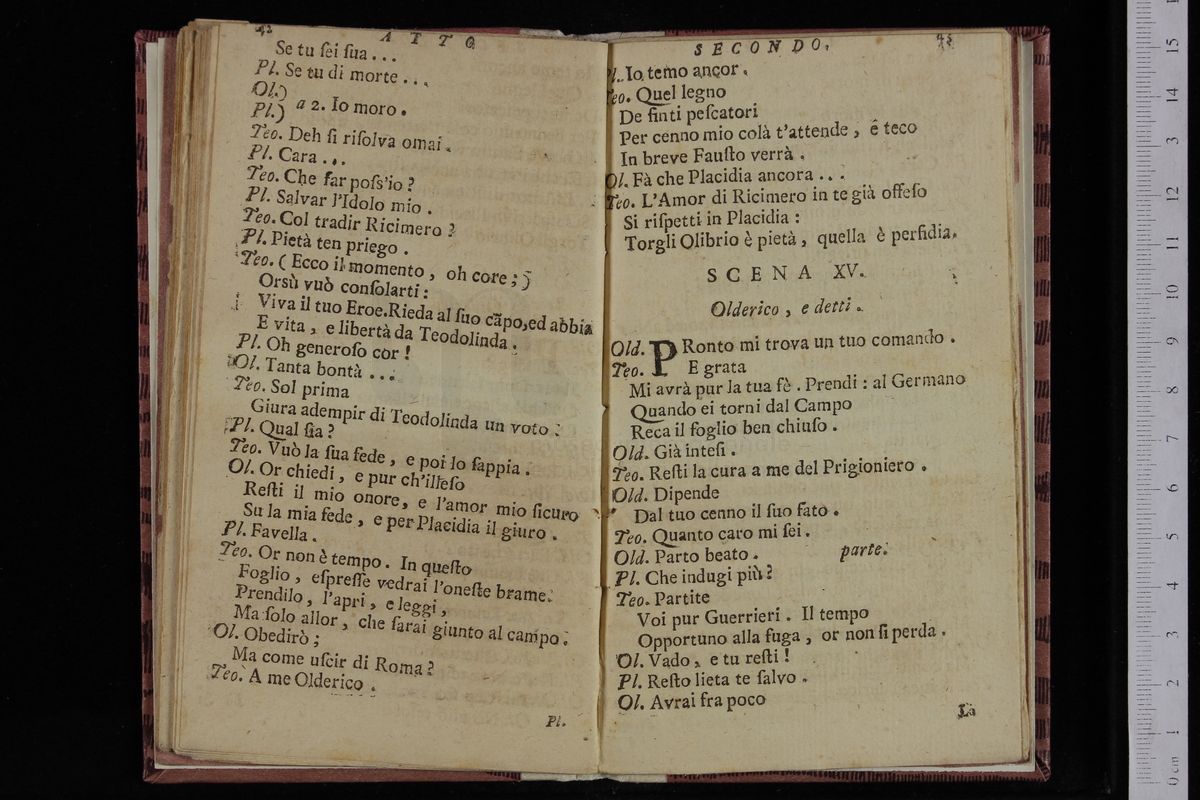 42 ATTO
Se tu ſei ſua . . .
Pl. Se tu di morte . . .
Ol.)
Pl.) a 2. Io moro .
Teo. Deh ſi riſolva omai .
Pl. Cara . . .
Teo. Che far poſs'io ?
Pl. Salvar l'Idolo mio .
Teo. Col tradir Ricimero ?
Pl. Pietà ten priego .
Teo. ( Ecco il momento , oh core ; )
Orsù vuò conſolarti :
Viva il tuo Eroe. Rieda al ſuo cãpo, ed abbia
E vita , e libertà da Teodolinda .
Pl. Oh generoſo cor !
Ol. Tanta bontà . . .
Teo. Sol prima
Giura adempir di Teodolinda un voto :
Pl. Qual ſia ?
Teo. Vuò la ſua fede , e poi lo ſappia .
Ol. Or chiedi , e pur ch'illeſo
Reſti il mio onore, e l'amor mio ſicuro
Su la mia fede , e per Placidia il giuro .
Pl. Favella .
Teo. Or non è tempo . In queſto
Foglio , eſpreſſe vedrai l'oneſte brame.
Prendilo , l'apri , e leggi ,
Ma ſolo allor , che ſarai giunto al campo .
Ol. Obedirò ;
Ma come uſcir di Roma ?
Teo. A me Olderico .
Pl.
SECONDO.
Pl. Io temo ancor .
Teo. Quel legno
De finti peſcatori
Per cenno mio colà t'attende , e teco
In breve Fauſto verrà .
Ol. Fà che Placidia ancora . . .
Teo. L'Amor di Ricimero in te già offeſo
Si riſpetti in Placidia :
Torgli Olibrio è pietà , quella è perfidia.
SCENA XV.
Olderico , e detti .
Old. PRonto mi trova un tuo comando .
Teo. E grata
Mi avrà pur la tua fè . Prendi : al Germano
Quando ei torni dal Campo
Reca il foglio ben chiuſo .
Old. Già inteſi .
Teo. Reſti la cura a me del Prigioniero .
Old. Dipende
Dal tuo cenno il ſuo fato .
Teo. Quanto caro mi ſei .
Old. Parto beato . parte.
Pl. Che indugi più ?
Teo. Partite
Voi pur Guerrieri . Il tempo
Opportuno alla fuga , or non ſi perda .
Ol. Vado , e tu reſti !
Pl. Reſto lieta te ſalvo .
Ol. Avrai fra poco
La